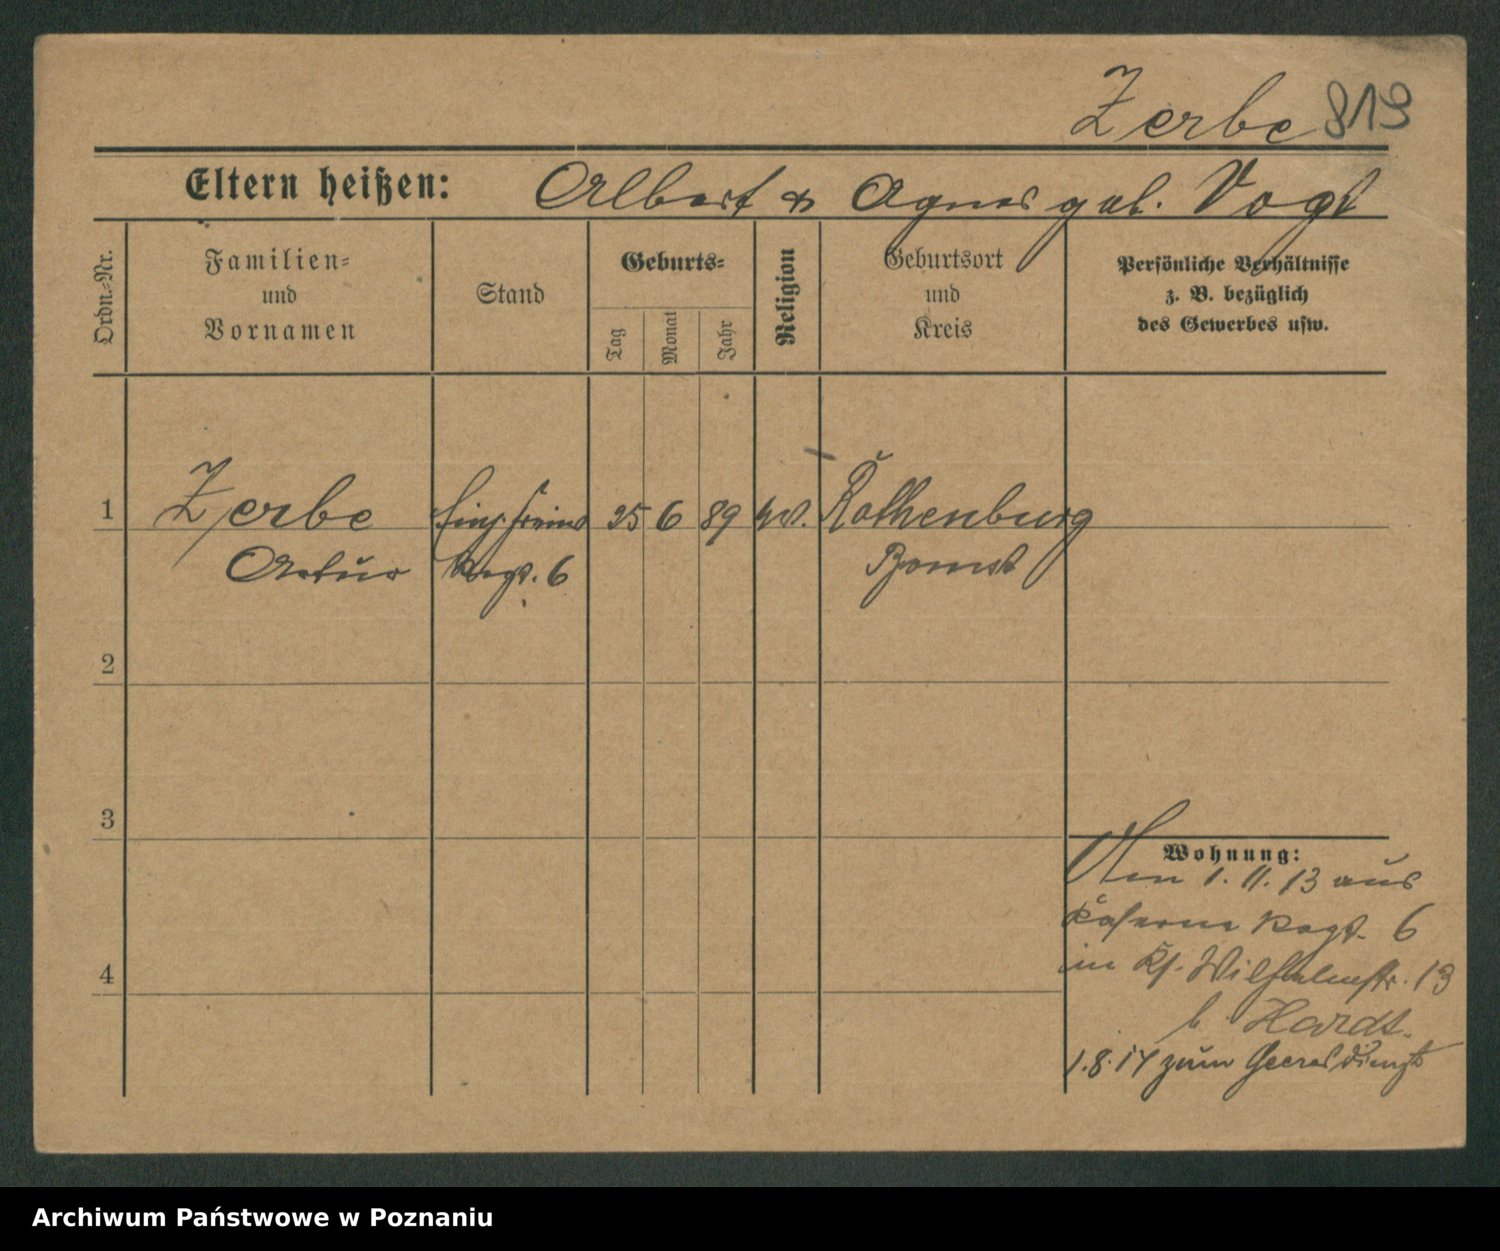 Zerbe 819
Eltern heißen: Albert & Agnes geb. Vogt
Ordn.-Nr.
Familien-
und
Vornamen
Stand
Geburts-
Tag
Monat
Jahr
Religion
Geburtsort
und
Kreis
Persönliche Verhältnisse
z. B. bezüglich
des Gewerbes usw.
1 Zerbe Einj. 25 6 89 ev. Rothenburg
Artur Regt. 6 Bomst
2
3
4
Wohnung:
Am 1. 11. 13 aus
Kaserne Regt. 6
in Ks. Wilhelmstr. 13
b. Hardt.
1.8.14 zum Heeresdienst
Archiwum Państwowe w Poznaniu